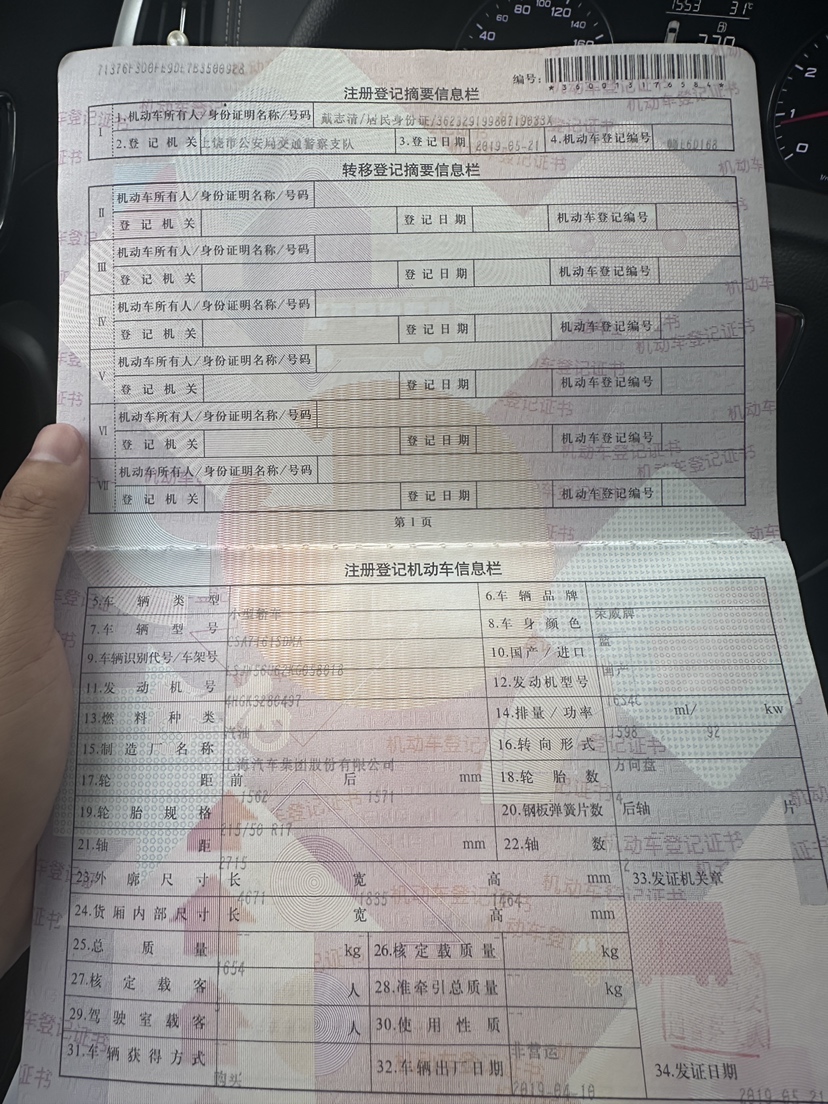 编号：
*360013176584*
注册登记摘要信息栏
I 1.机动车所有人/身份证明名称/号码 戴志清/居民身份证/
2.登记机关 上饶市公安局交通警察支队 3.登记日期 2019-05-21 4.机动车登记编号
转移登记摘要信息栏
II 机动车所有人/身份证明名称/号码
登记机关 登记日期 机动车登记编号
III 机动车所有人/身份证明名称/号码
登记机关 登记日期 机动车登记编号
IV 机动车所有人/身份证明名称/号码
登记机关 登记日期 机动车登记编号
V 机动车所有人/身份证明名称/号码
登记机关 登记日期 机动车登记编号
VI 机动车所有人/身份证明名称/号码
登记机关 登记日期 机动车登记编号
VII 机动车所有人/身份证明名称/号码
登记机关 登记日期 机动车登记编号
第1页
注册登记机动车信息栏
5.车辆类型 小型轿车 6.车辆品牌 荣威牌
7.车辆型号 8.车身颜色 蓝
9.车辆识别代号/车架号 10.国产/进口 国产
11.发动机号 12.发动机型号
13.燃料种类 汽油 14.排量/功率 1598 ml/ 92 kw
15.制造厂名称 上海汽车集团股份有限公司 16.转向形式 方向盘
17.轮距 前 1562 后 1571 mm 18.轮胎数 4
19.轮胎规格 215/50 R17 20.钢板弹簧片数 后轴 片
21.轴距 2715 mm 22.轴数 2
23.外廓尺寸 长 4671 宽 1835 高 1464 mm 33.发证机关章
24.货厢内部尺寸 长 宽 高 mm
25.总质量 1654 kg 26.核定载质量 kg
27.核定载客 5 人 28.准牵引总质量 kg
29.驾驶室载客 人 30.使用性质 非营运
31.车辆获得方式 购买 32.车辆出厂日期 2019-04-10 34.发证日期 2019-05-21